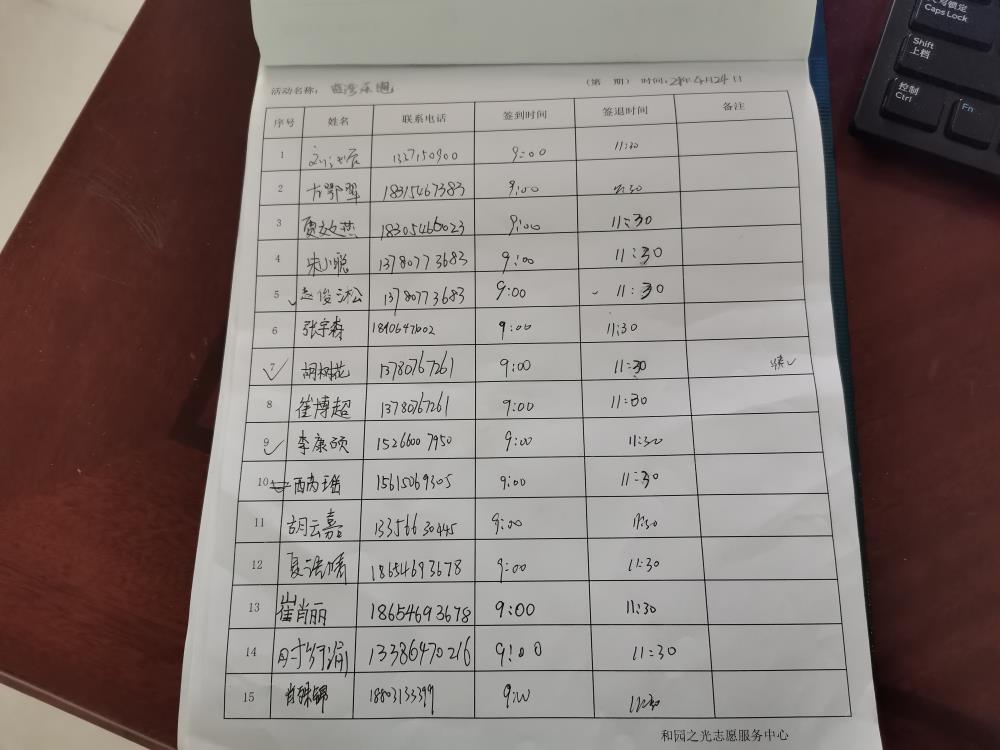 文与锁定
Caps Lock
Shift
上档
控制
Ctrl
Fn
活动名称： （第 期） 时间：21年4月24日
序号 姓名 联系电话 签到时间 签退时间 备注
1 9:00 11:30
2 18315467383 9:00 11:30
3 18305466023 9:00 11:30
4 宋小聪 13780773683 9:00 11:30
5 赵俊松 13780773683 9:00 11:30
6 张宇森 9:00 11:30
7 胡树花 13780767261 9:00 11:30
8 崔博超 13780767261 9:00 11:30
9 李康硕 15266007950 9:00 11:30
10 15615069305 9:00 11:30
11 胡云嘉 13356630445 9:00 11:30
12 18654693678 9:00 11:30
13 崔肖丽 18654693678 9:00 11:30
14 13386470216 9:00 11:30
15 18803133399 9:00 11:30
和园之光志愿服务中心